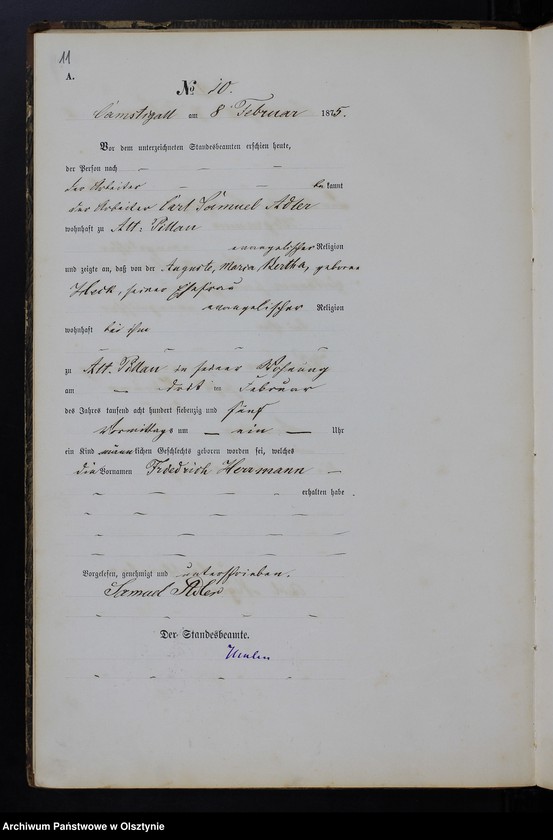 11
A.
№ 10.
Camstigall am 8 Februar 1875.
Vor dem unterzeichneten Standesbeamten erschien heute,
der Person nach
der Arbeiter bekannt
der Arbeiter Carl Samuel Adler
wohnhaft zu Alt-Pillau
evangelischer Religion
und zeigte an, daß von der Auguste, Maria Bertha, geborne
seiner Ehefrau
evangelischer Religion
wohnhaft bei ihm
zu Alt Pillau in seiner Wohnung
am ten Februar
des Jahres tausend acht hundert siebenzig und fünf
Vormittags um ein Uhr
ein Kind männlichen Geschlechts geboren worden sei, welches
die Vornamen Friedrich Herrmann
erhalten habe.
Vorgelesen, genehmigt und unterschrieben.
Samuel Adler
Der Standesbeamte.
Archiwum Państwowe w Olsztynie